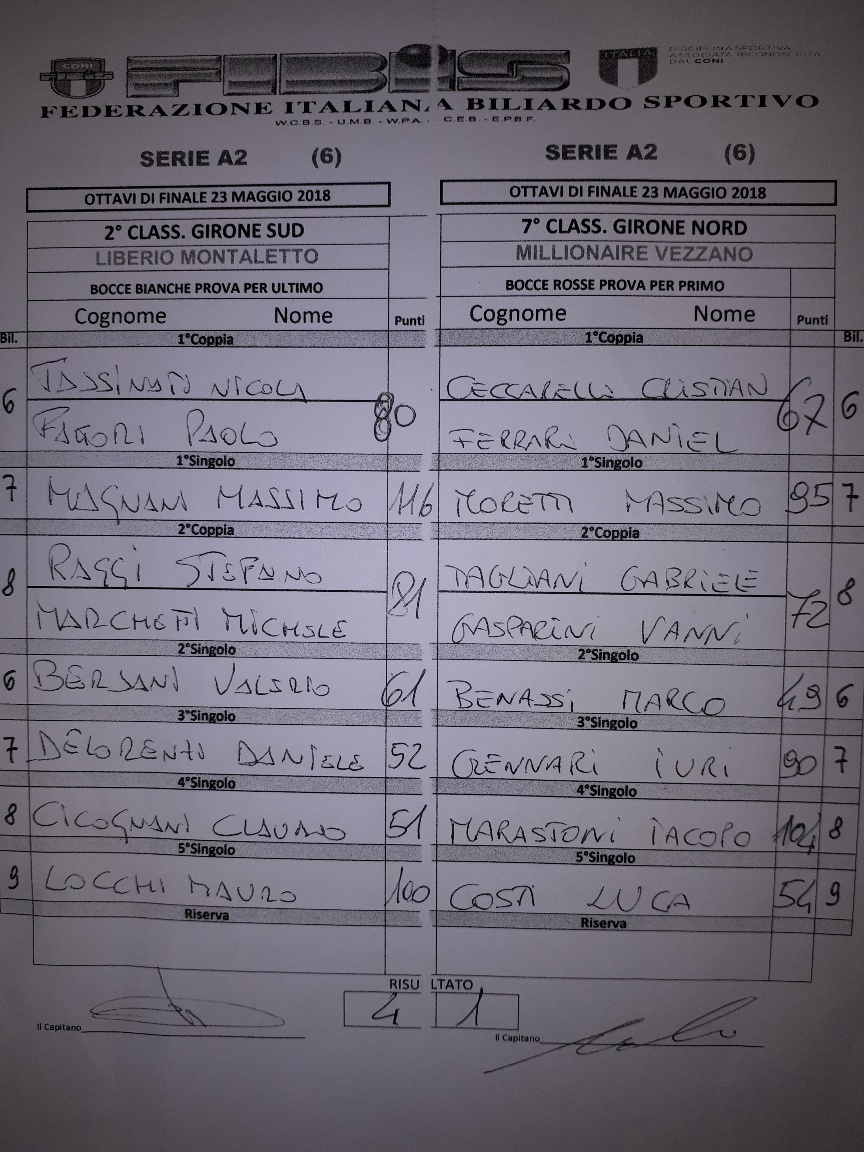 CONI FIBiS ITALIA DISCIPLINA SPORTIVA
ASSOCIATA RICONOSCIUTA
DAL CONI
FEDERAZIONE ITALIANA BILIARDO SPORTIVO
W.C.B.S. - U.M.B. - W.P.A. - C.E.B. - E.P.B.F.
SERIE A2 (6) SERIE A2 (6)
OTTAVI DI FINALE 23 MAGGIO 2018 OTTAVI DI FINALE 23 MAGGIO 2018
2° CLASS. GIRONE SUD 7° CLASS. GIRONE NORD
LIBERIO MONTALETTO MILLIONAIRE VEZZANO
BOCCE BIANCHE PROVA PER ULTIMO BOCCE ROSSE PROVA PER PRIMO
Cognome Nome Punti Cognome Nome Punti
Bil. 1°Coppia 1°Coppia Bil.
TASSINATI NICOLA CECCARELLI CRISTIAN
6 80 67 6
FAGORI PAOLO FERRARI DANIEL
1°Singolo 1°Singolo
7 MAGNANI MASSIMO 116 MORETTI MASSIMO 95 7
2°Coppia 2°Coppia
RAGGI STEFANO TAGLIANI GABRIELE
8 81 72 8
MARCHETTI MICHELE GASPARINI VANNI
2°Singolo 2°Singolo
6 BERSANI VALERIO 61 BENASSI MARCO 49 6
3°Singolo 3°Singolo
7 DELORENZI DANIELE 52 GENNARI IURI 90 7
4°Singolo 4°Singolo
8 CICOGNANI CLAUDIO 51 MARASTONI IACOPO 104 8
5°Singolo 5°Singolo
9 LOCCHI MAURO 100 COSTI LUCA 54 9
Riserva Riserva
RISULTATO
4 1
Il Capitano Il Capitano